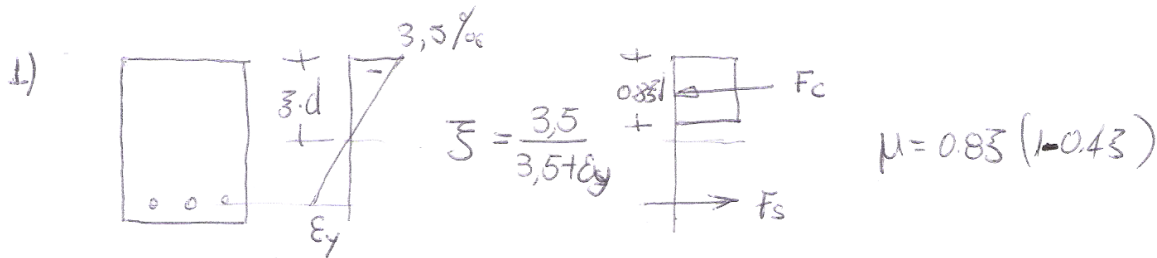 1)
3,5‰
ξ·d
εy
ξ = 3,5 / (3,5+εy)
0.8ξd
Fc
Fs
μ = 0.8ξ (1-0.4ξ)